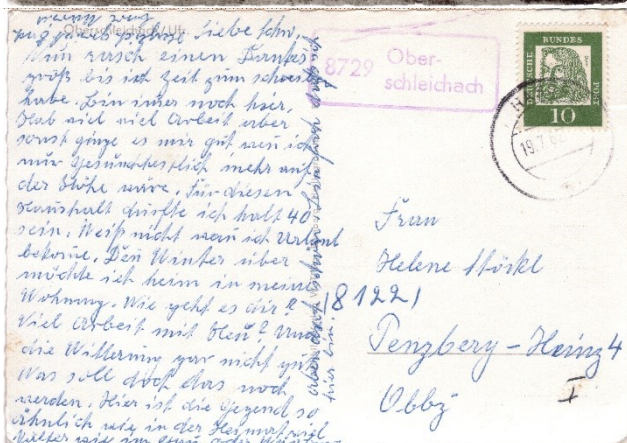 Oberschleichach / Ufr.
Liebe Schw.
Nun rasch einen Kartengruß
bis ich Zeit zum schreiben
habe. Bin immer noch hier,
Hab viel viel Arbeit aber
sonst ginge es mir gut wen ich
nur Gesundheitlich mehr auf
der Höhe wäre. Für diesen
Haushalt dürfte ich halt 40
sein. Weiß nicht wan ich Urlaub
bekome. Den Winter über
möchte ich heim in meine
Wohnung. Wie geht es dir?
Viel Arbeit mit Heu? Und
die Witterung gar nicht gut
Was soll doch das noch
werden. Hier ist die Gegend so
ähnlich wie in der Heimat viel
hier bin.
8729 Ober-
schleichach
DEUTSCHE BUNDES POST
10
19.7.62
Frau
Helene Stöckl
(8122)
Penzberg-Heinz 4
Obby
I